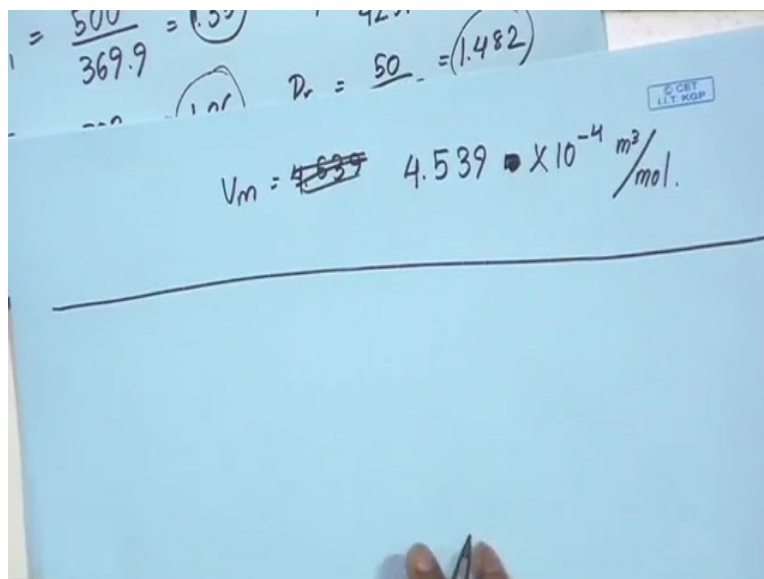 = 500 / 369.9 = 1.35
Dr = 50 = 1.482
© CET
I.I.T. KGP
Vm = 4.539 4.539 × 10⁻⁴ m³/mol.